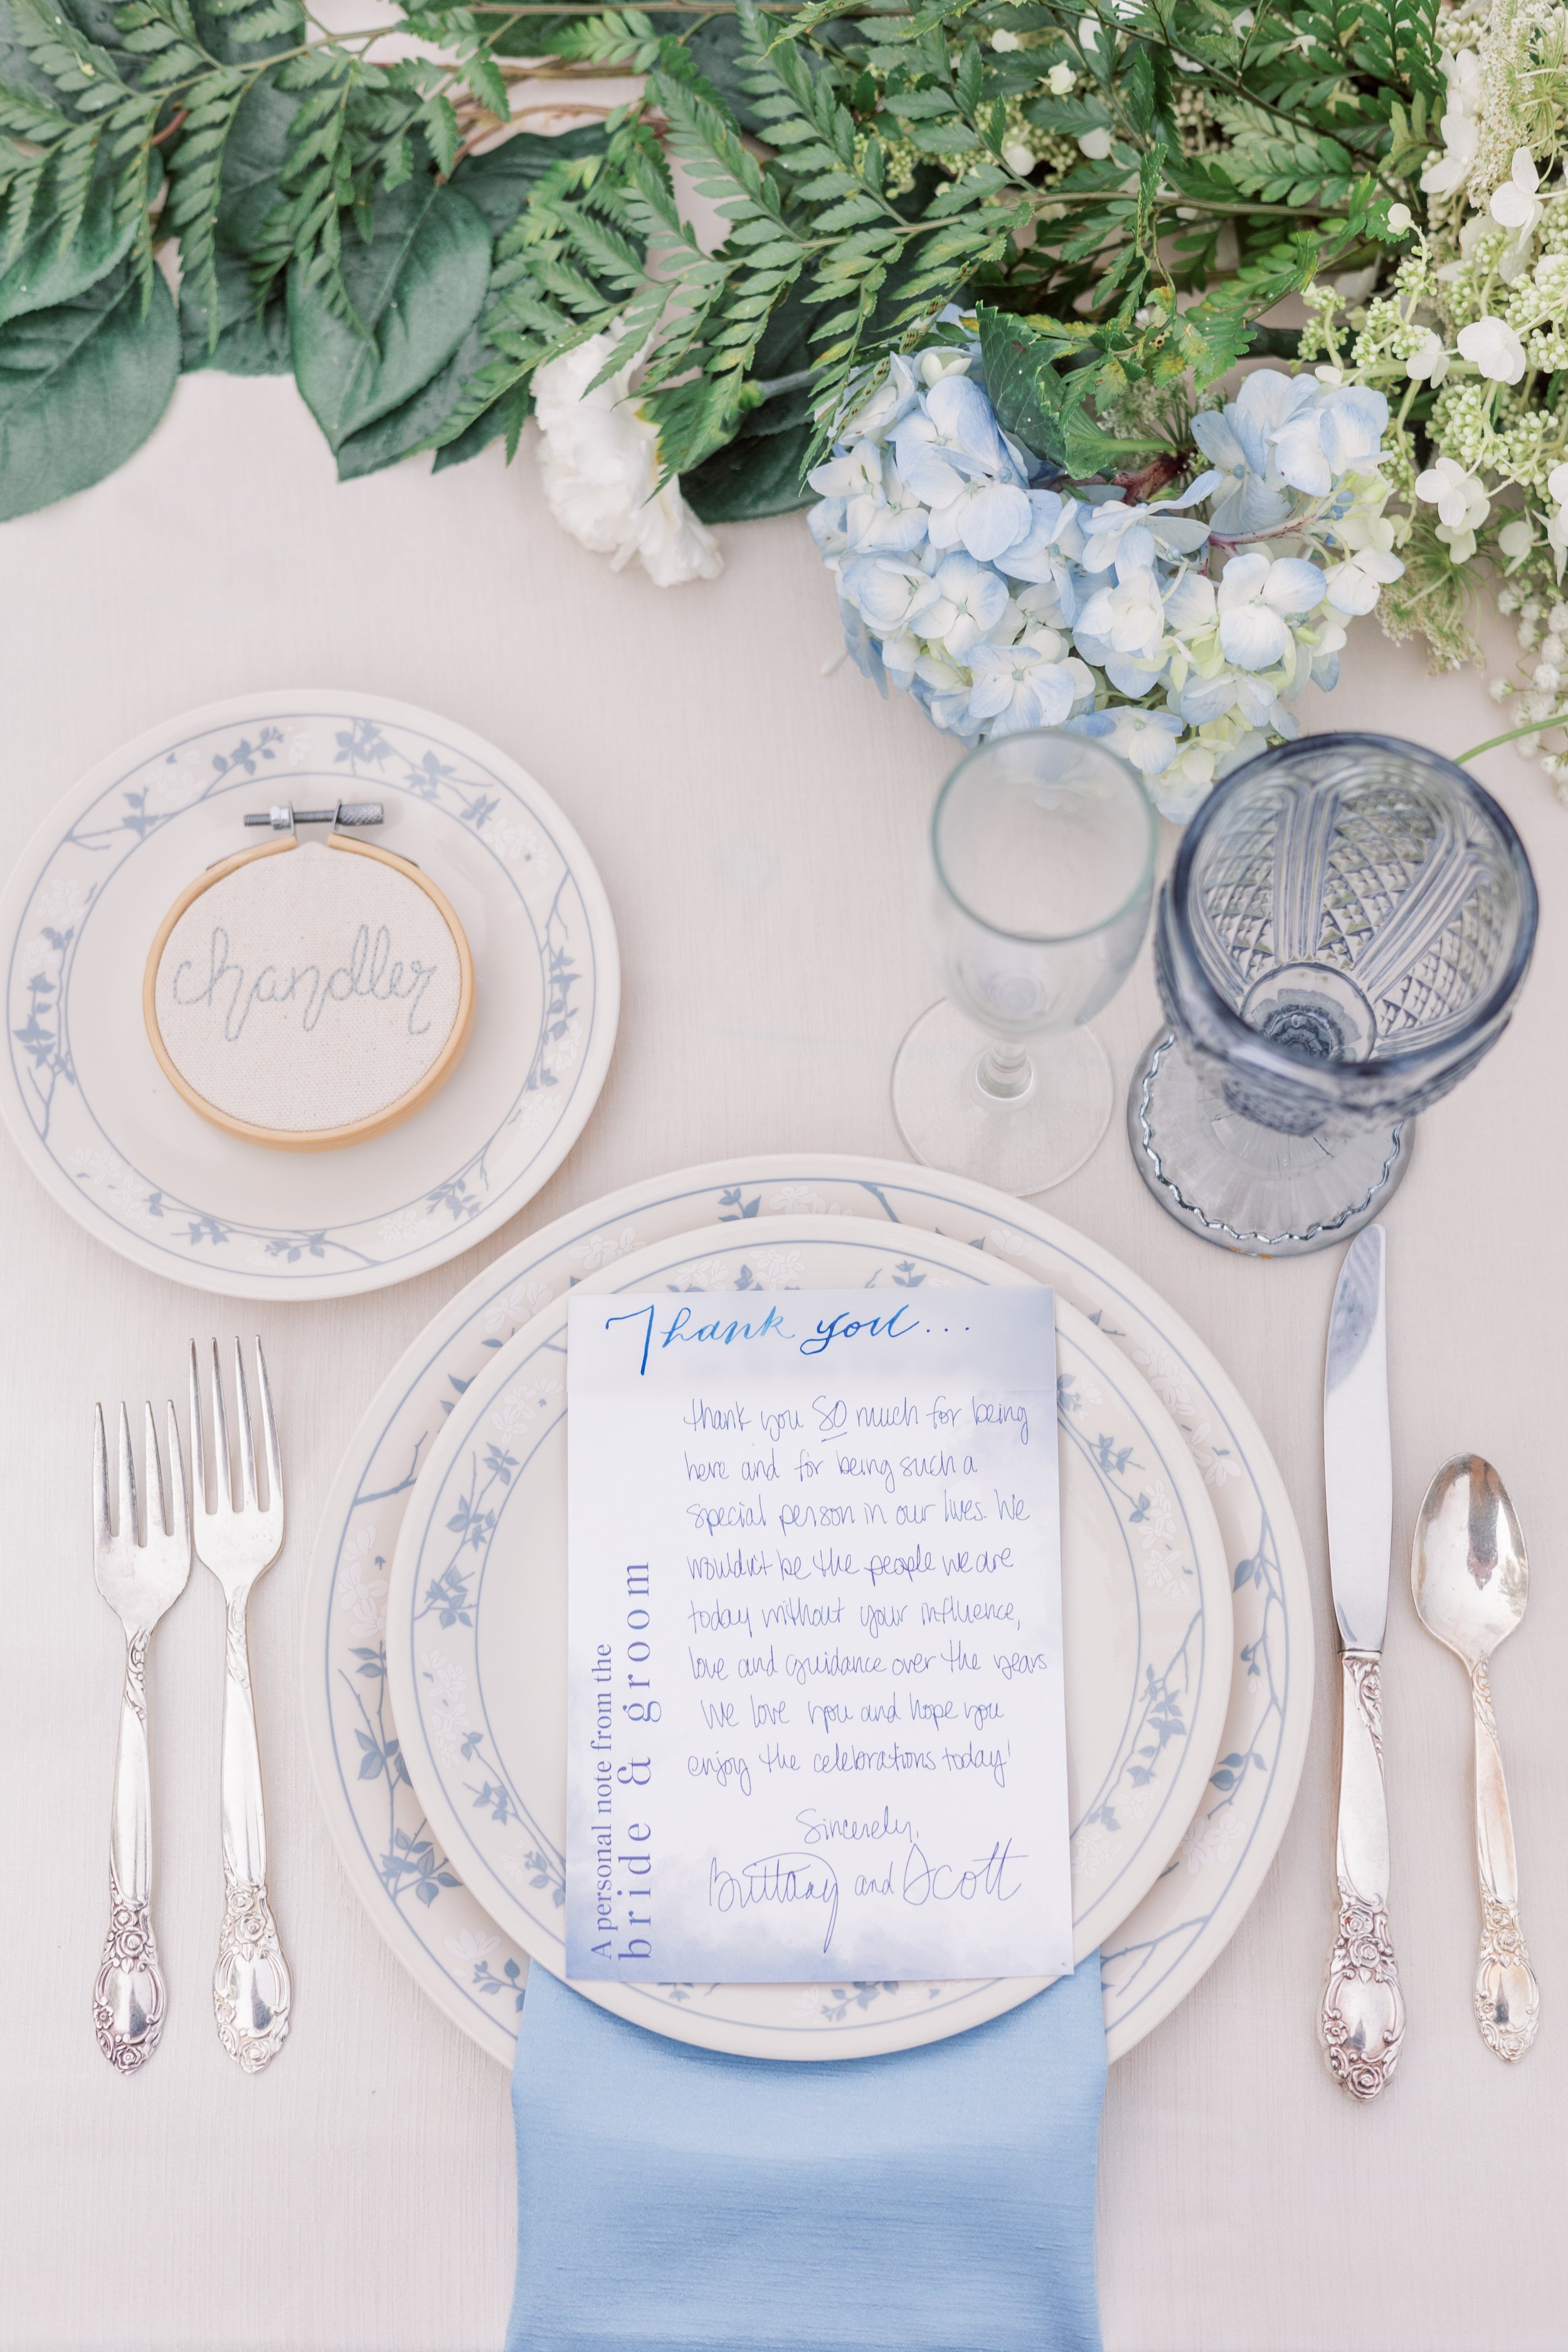 chandler
Thank you...
thank you SO much for being
here and for being such a
special person in our lives. We
wouldn't be the people we are
today without your influence,
love and guidance over the years
We love you and hope you
enjoy the celebrations today!
Sincerely,
Brittany and Scott
A personal note from the
bride & groom